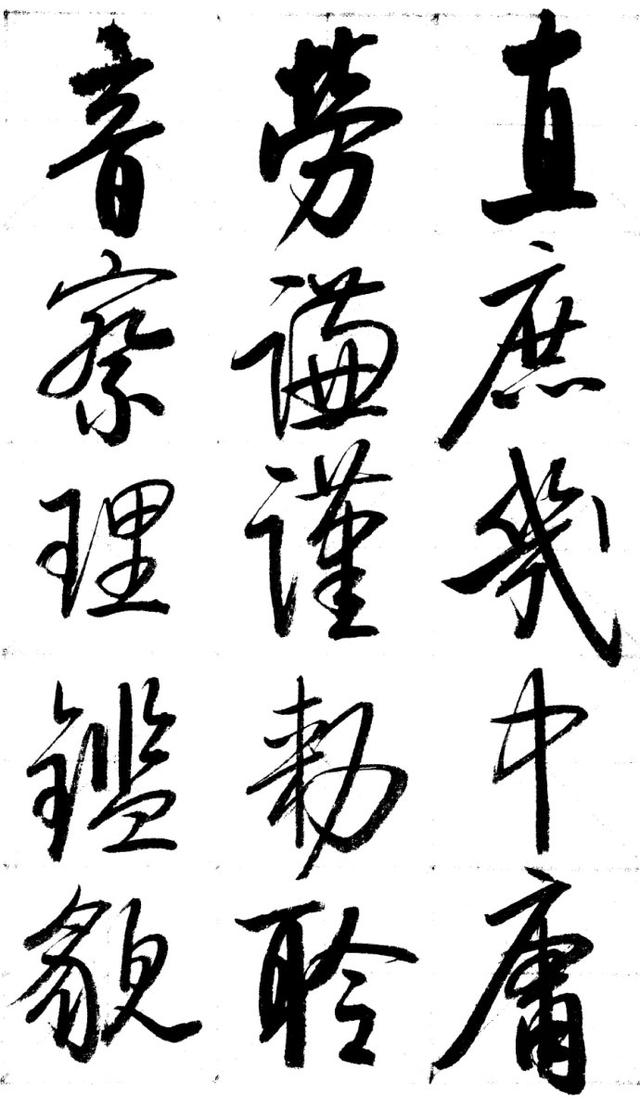 直庶幾中庸
勞謙謹勅聆
音察理鑑貌